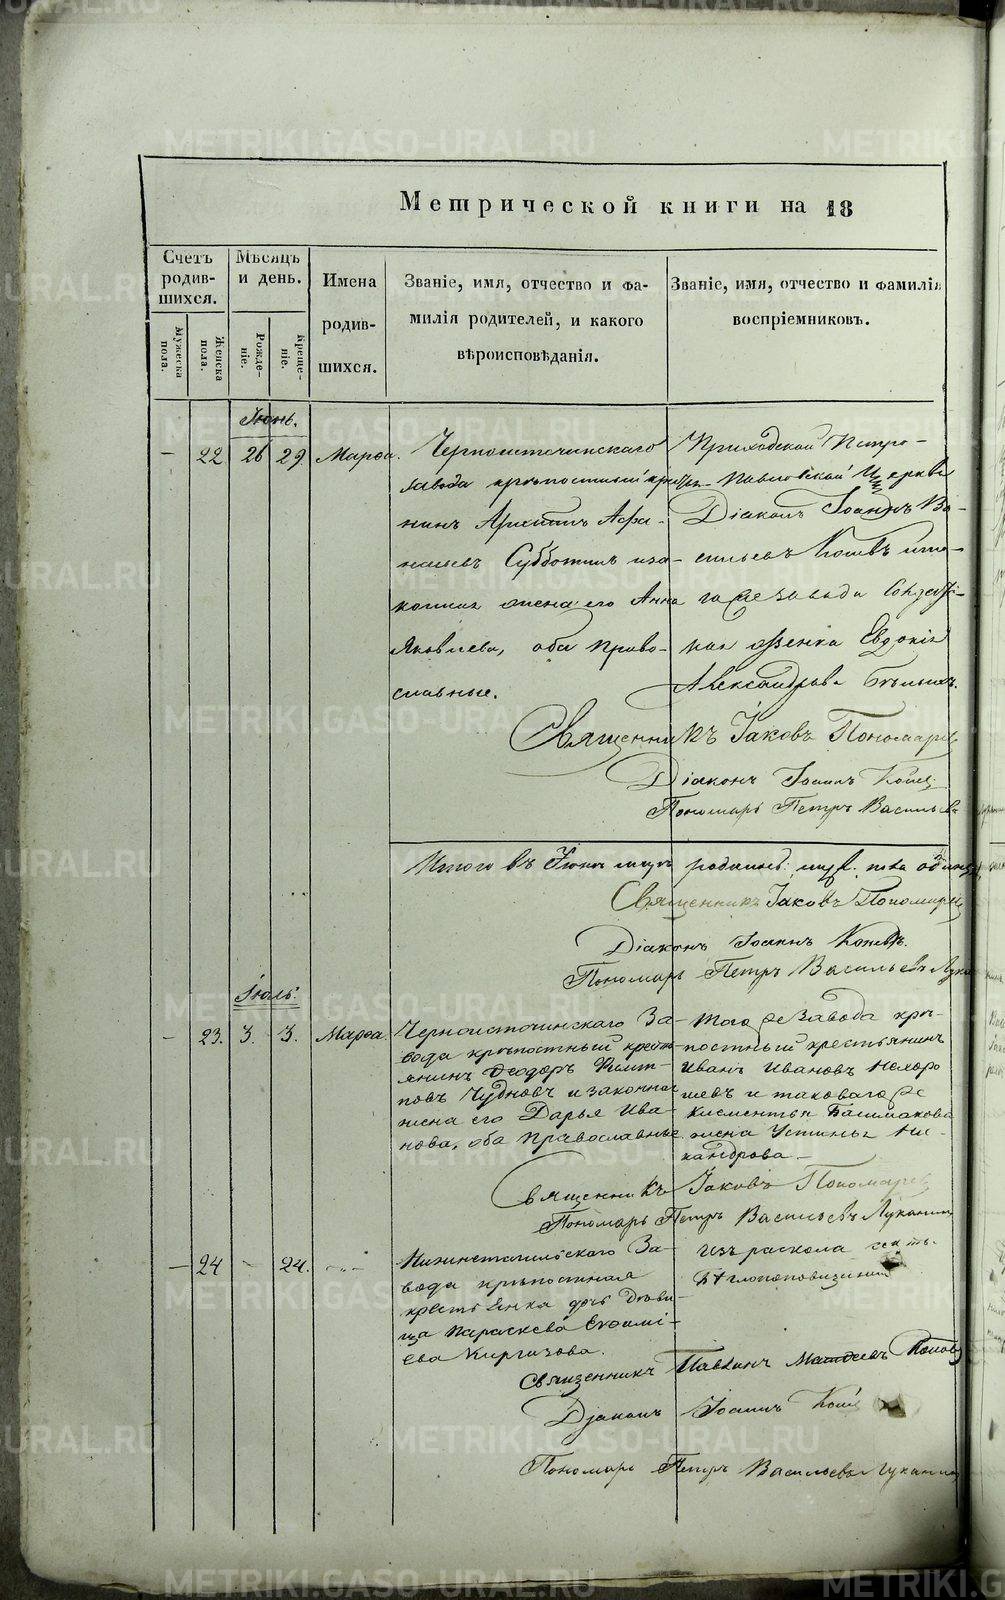 METRIKI.GASO-URAL.RU
Метрической книги на 18
Счетъ родив-шихся.
Мужеска пола.
Женска пола.
Мѣсяцъ и день.
Рожде-ніе.
Креще-ніе.
Имена родив-шихся.
Званіе, имя, отчество и фа-
милія родителей, и какого
вѣроисповѣданія.
Званіе, имя, отчество и фамилія
воспріемниковъ.
Іюнь.
— 22 26 29 Марѳа.
Черноисточинскаго
завода крѣпостный
нинъ Архипъ Аѳа-
насьевъ Субботинъ и за-
конная жена его Анна
Яковлева, оба право-
славные.
Приходской Петро-
Павловской Церкви
Діаконъ Іоаннъ Ва-
сильевъ
завода
женка Евдокія
Александрова
Священникъ Іаковъ Пономарев
Діаконъ Іоаннъ
Пономарь Петръ Васильев
Итого въ Іюнѣ
Священникъ Іаковъ Пономарев
Діаконъ Іоаннъ
Пономарь Петръ Васильевъ Лука
Іюль.
— 23. 3. 3. Марѳа.
Черноисточинскаго За-
вода крѣпостный кресть-
янинъ Ѳеодоръ
повъ Чудновъ и законная
жена его Дарья Ива-
нова, оба православные.
того же Завода крѣ-
постный крестьянинъ
Иванъ Ивановъ Нехоро
шевъ и таковаго же
Климентья Башмакова
жена Устинья Ни-
кандрова —
Священникъ Іаковъ Пономарев
Пономарь Петръ Васильевъ Луканин
— 24 - 24.
Нижнетагильскаго За-
вода крѣпостная
крестьянка дѣви-
ца Параскева Евѳимі-
ева Киргизова.
изъ раскола
Священникъ Павлинъ Попов
Діаконъ Іоаннъ
Пономарь Петръ Васильевъ Луканин